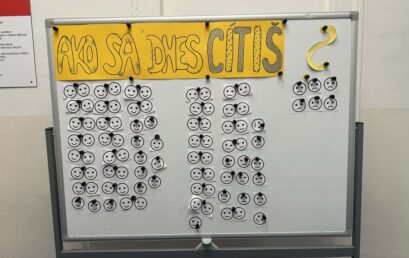 AKO SA DNES CÍTIŠ ?